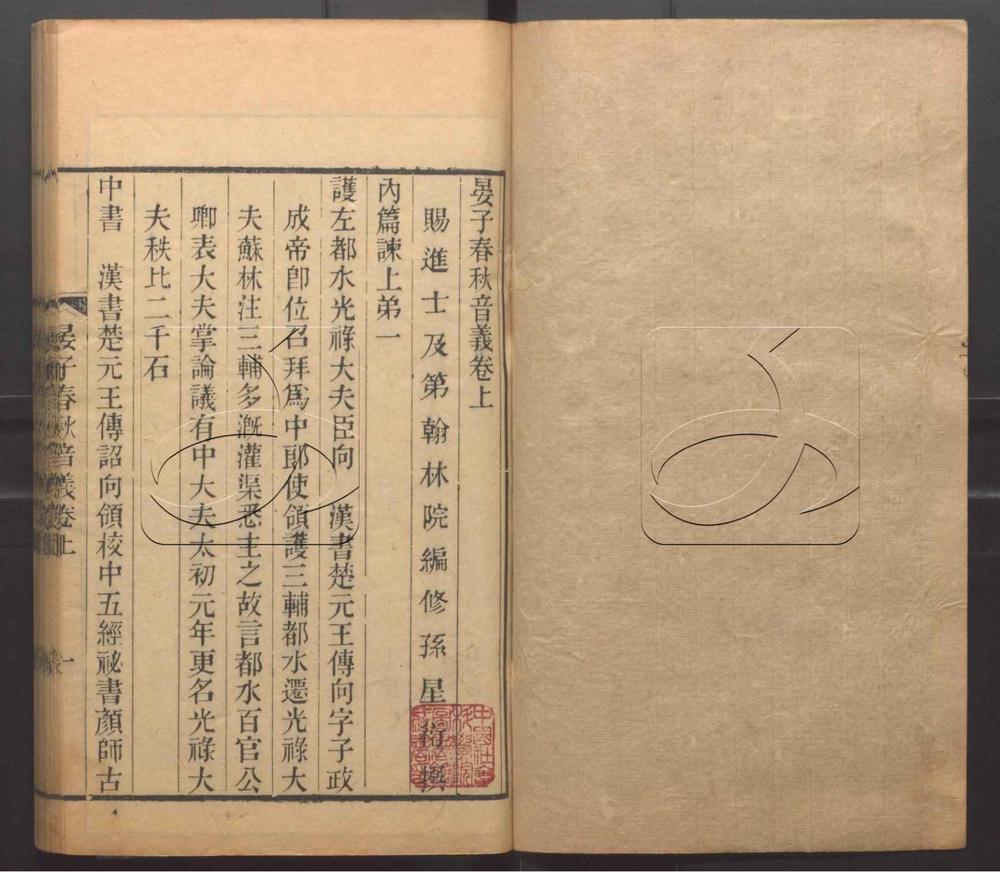 晏子春秋音義卷上
賜進士及第翰林院編修孫星衍撰
內篇諫上弟一
護左都水光祿大夫臣向　漢書楚元王傳向字子政
成帝卽位召拜爲中郎使領護三輔都水遷光祿大
夫蘇林注三輔多漑灌渠悉主之故言都水百官公
卿表大夫掌論議有中大夫太初元年更名光祿大
夫秩比二千石
中書　漢書楚元王傳詔向領校中五經祕書顏師古
晏子春秋音義卷上
一